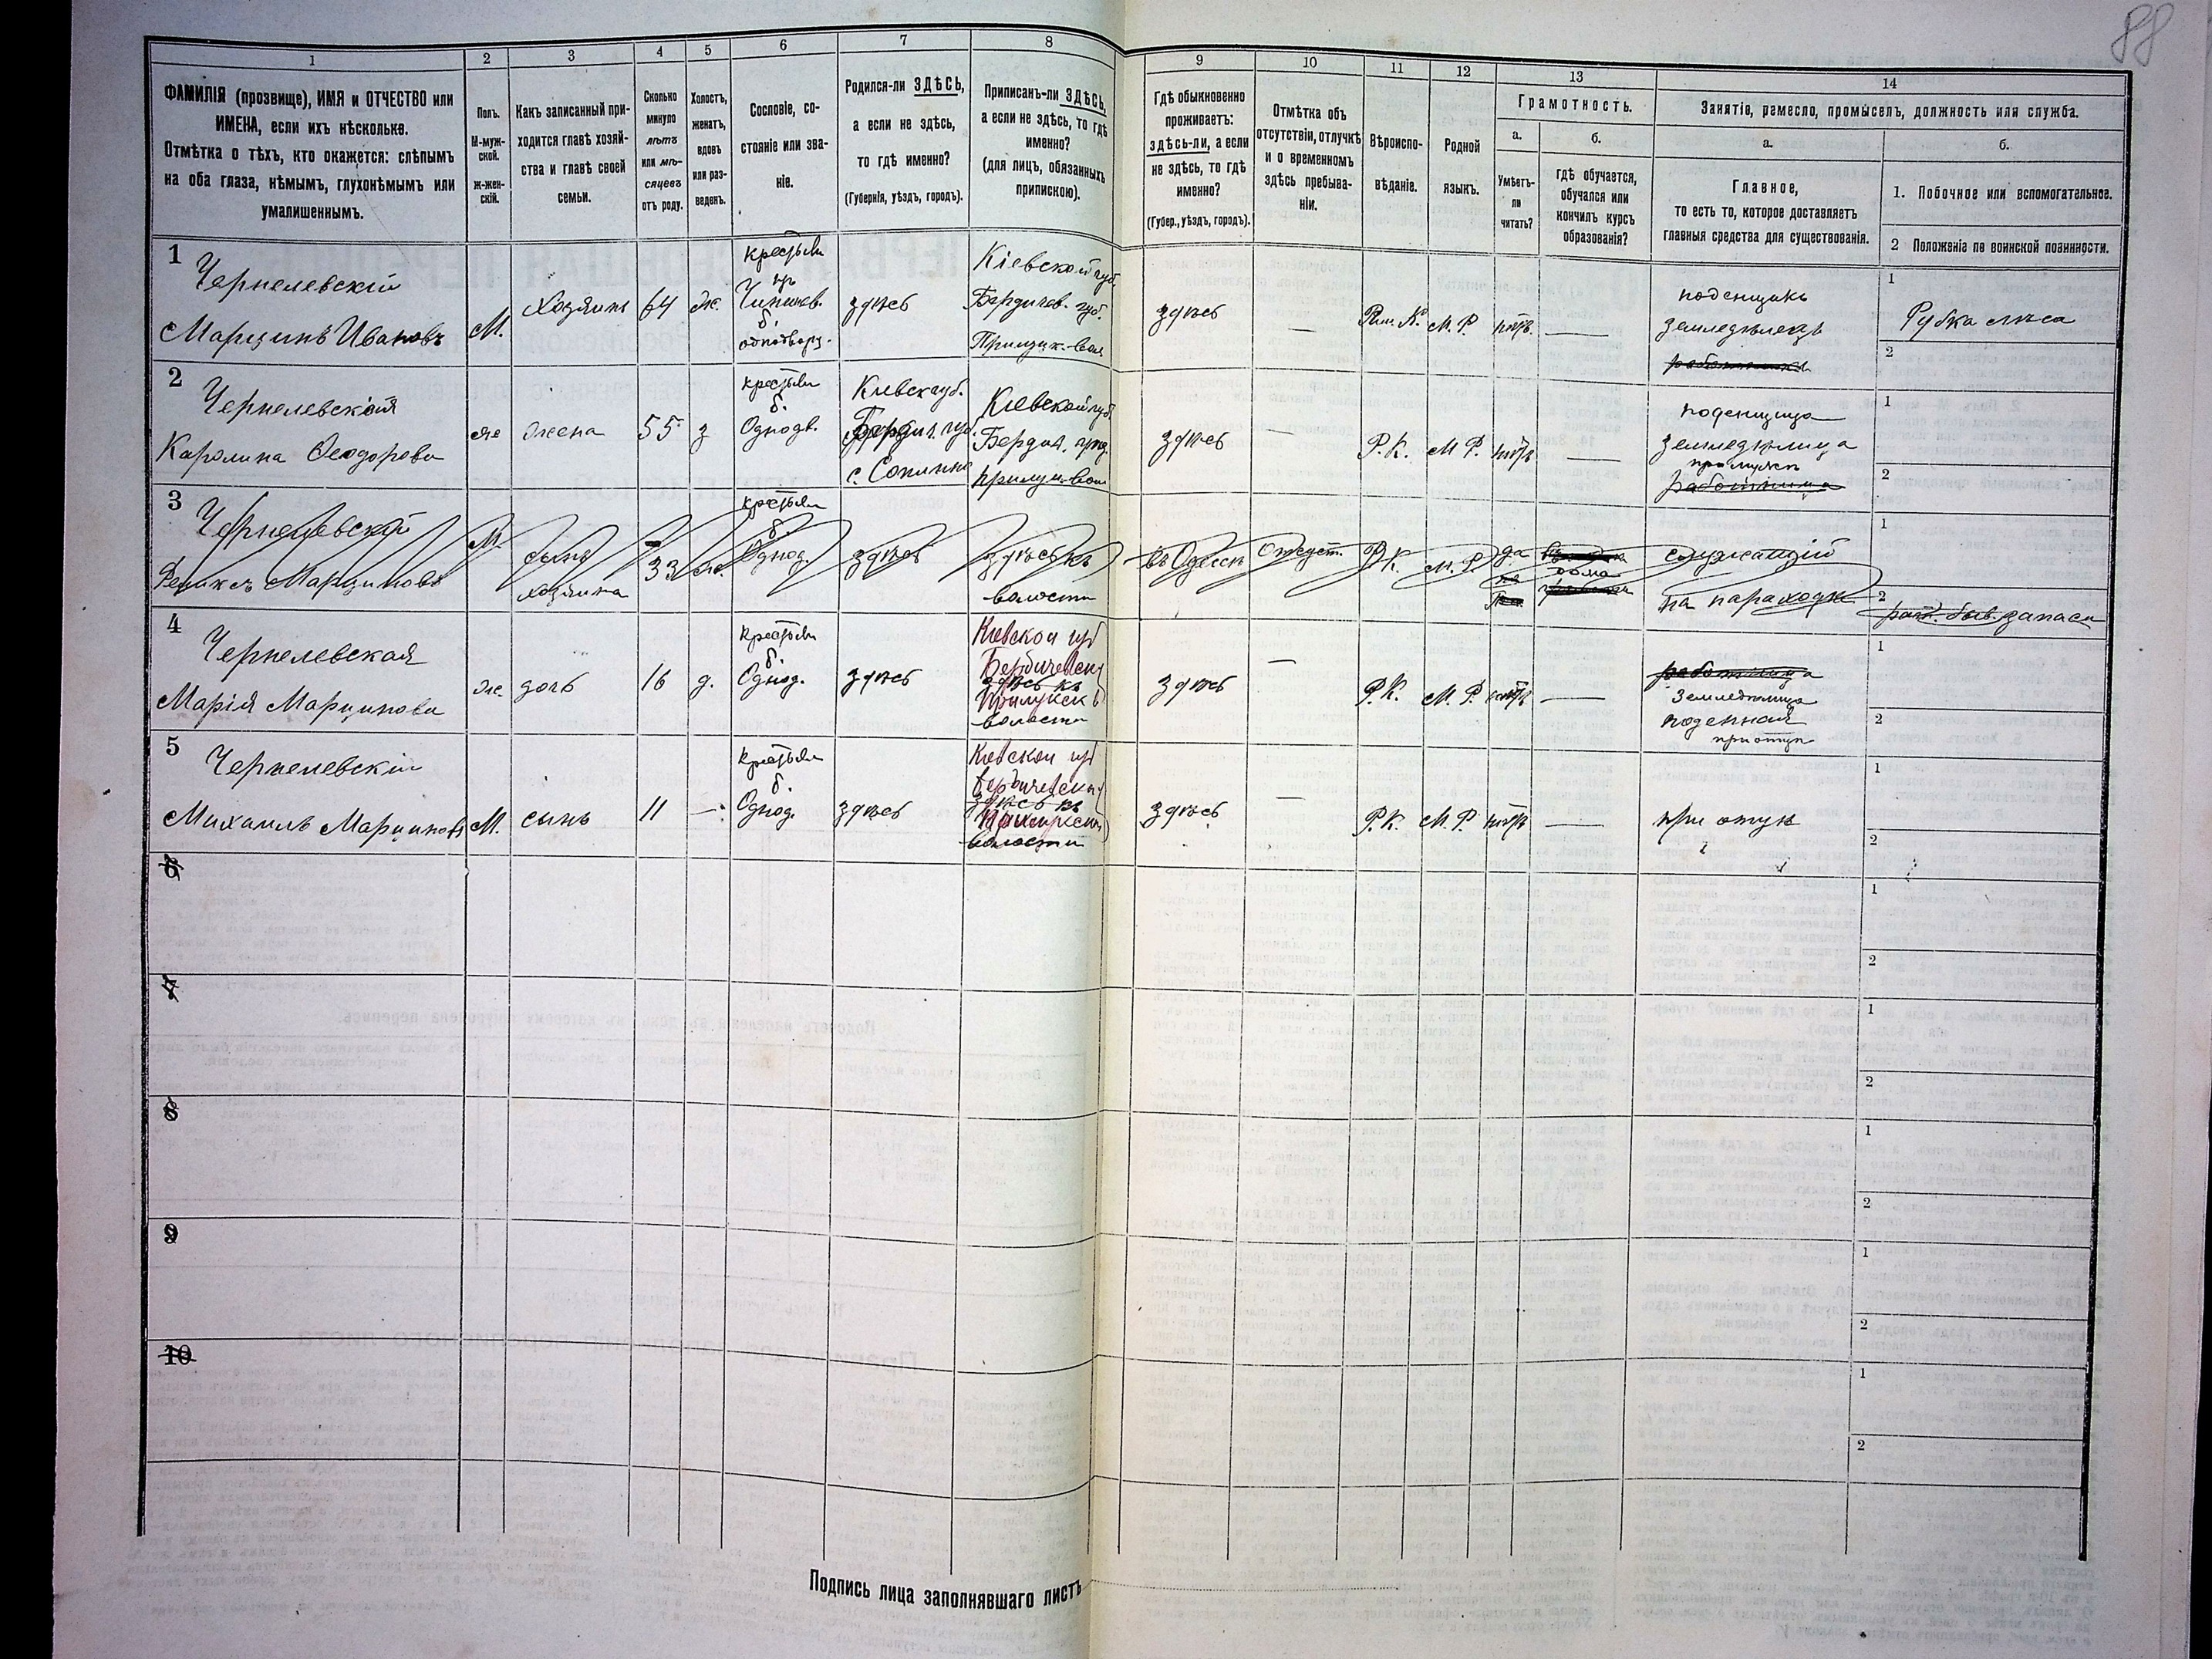 88
1
2
3
4
5
6
7
8
9
10
11
12
13
14
ФАМИЛІЯ (прозвище), ИМЯ и ОТЧЕСТВО или
ИМЕНА, если ихъ нѣсколько.
Отмѣтка о тѣхъ, кто окажется: слѣпымъ
на оба глаза, нѣмымъ, глухонѣмымъ или
умалишеннымъ.
Полъ.
М-муж-
ской.
ж-жен-
скій.
Какъ записанный при-
ходится главѣ хозяй-
ства и главѣ своей
семьи.
Сколько
минуло
лѣтъ
или мѣ-
сяцевъ
отъ роду.
Холостъ,
женатъ,
вдовъ
или раз-
веденъ.
Сословіе, со-
стояніе или зва-
ніе.
Родился-ли ЗДѢСЬ,
а если не здѣсь,
то гдѣ именно?
(Губернія, уѣздъ, городъ).
Приписанъ-ли ЗДѢСЬ,
а если не здѣсь, то гдѣ
именно?
(для лицъ, обязанныхъ
припискою).
Гдѣ обыкновенно
проживаетъ:
здѣсь-ли, а если
не здѣсь, то гдѣ
именно?
(Губер., уѣздъ, городъ).
Отмѣтка объ
отсутствіи, отлучкѣ
и о временномъ
здѣсь пребыва-
ніи.
Вѣроиспо-
вѣданіе.
Родной
языкъ.
Грамотность.
а.
б.
Умѣетъ-
ли
читать?
гдѣ обучается,
обучался или
кончилъ курсъ
образованія?
Занятіе, ремесло, промыселъ, должность или служба.
а.
б.
Главное,
то есть то, которое доставляетъ
главныя средства для существованія.
1. Побочное или вспомогательное.
2 Положеніе по воинской повинности.
1
Чернелевскій
Марцинъ Ивановъ
М.
Хозяинъ
64
ж.
б.
здѣсь
Кіевской губ.
Бердичев.
здѣсь
—
М. Р.
нѣтъ
—
поденщикъ
земледѣлецъ
1
Рубка лѣса
2
2
Чернелевская
Каролина Ѳеодорова
же
жена
55
з
б.
Однодв.
с.
Кіевской губ.
здѣсь
—
Р. К.
М Р.
нѣтъ
—
поденщица
земледѣлица
работница
1
2
3
Чернелевскій
Феликсъ Марциновъ
М.
сынъ
хозяина
33
ж.
б.
Однод.
здѣсь
здѣсь къ
волости
въ Одессѣ
Отсутст.
Р. К.
М. Р.
да
дома
служащій
на пароходѣ
1
2
запаса
4
Чернелевская
Марія Марцинова
же.
дочь
16
д.
б.
Однод.
здѣсь
Кіевской губ
здѣсь къ
волости
здѣсь
—
Р. К.
М. Р.
нѣтъ
—
работница
земледѣлица
поденная
при отцѣ
1
2
5
Чернелевскій
Михаилъ Марциновъ
М.
сынъ
11
—
б.
Однод.
здѣсь
Кіевской губ
здѣсь къ
волости
здѣсь
—
Р. К.
М. Р.
нѣтъ
—
при отцѣ
1
2
6
1
2
7
1
2
8
1
2
9
1
2
10
1
2
Подпись лица заполнявшаго листъ